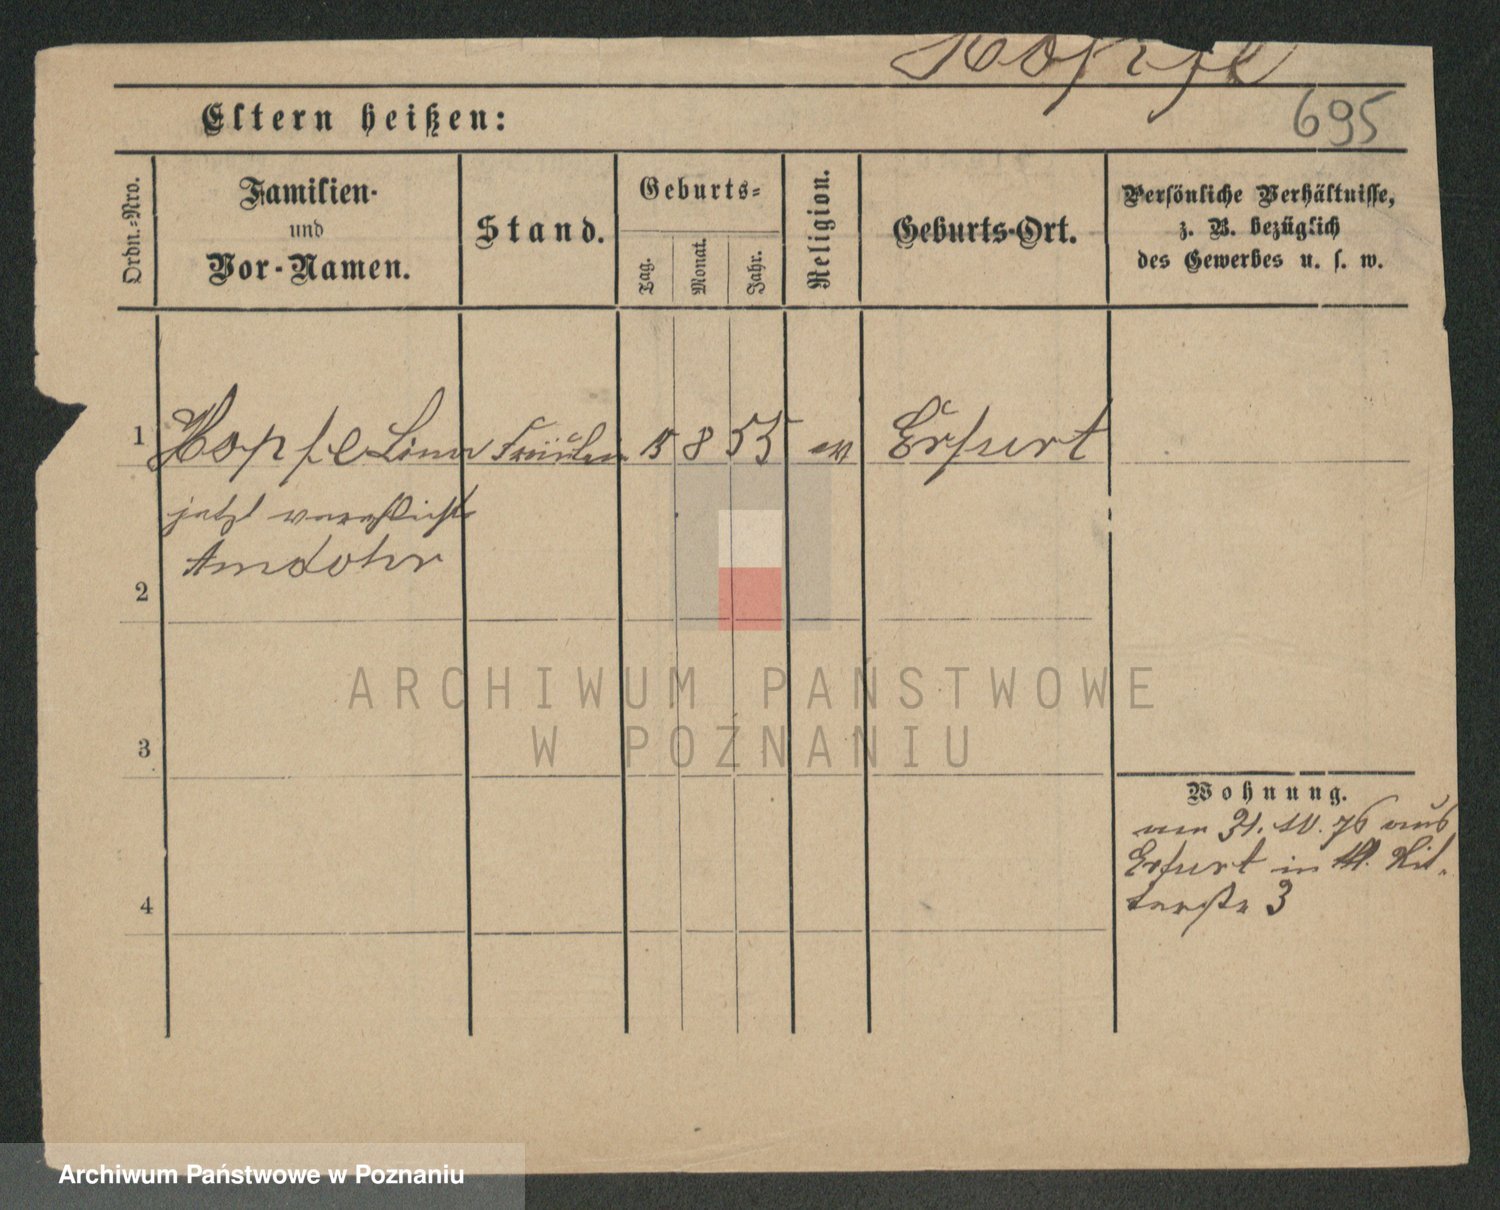 Hopfe
695
Eltern heißen:
Ordn.-Nro.
Familien-
und
Vor-Namen.
Stand.
Geburts-
Tag.
Monat.
Jahr.
Religion.
Geburts-Ort.
Persönliche Verhältnisse,
z. B. bezüglich
des Gewerbes u. s. w.
1 Hopfe Lina Fräulein 15 8 55 ev Erfurt
jetzt verehelicht
Amdohr
2
3
4
Wohnung.
am 31. 10. 76 aus
Erfurt in Rit-
terstr 3
ARCHIWUM PAŃSTWOWE
W POZNANIU
Archiwum Państwowe w Poznaniu